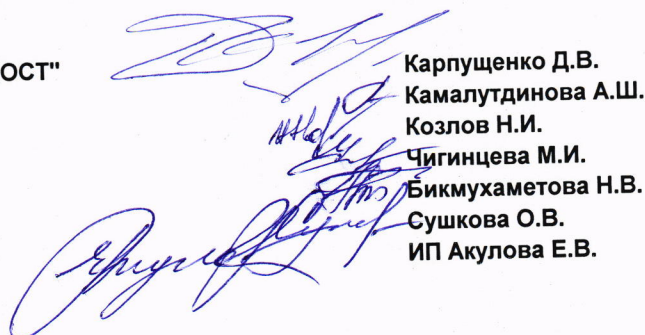 ОСТ"
Карпущенко Д.В.
Камалутдинова А.Ш.
Козлов Н.И.
Чигинцева М.И.
Бикмухаметова Н.В.
Сушкова О.В.
ИП Акулова Е.В.